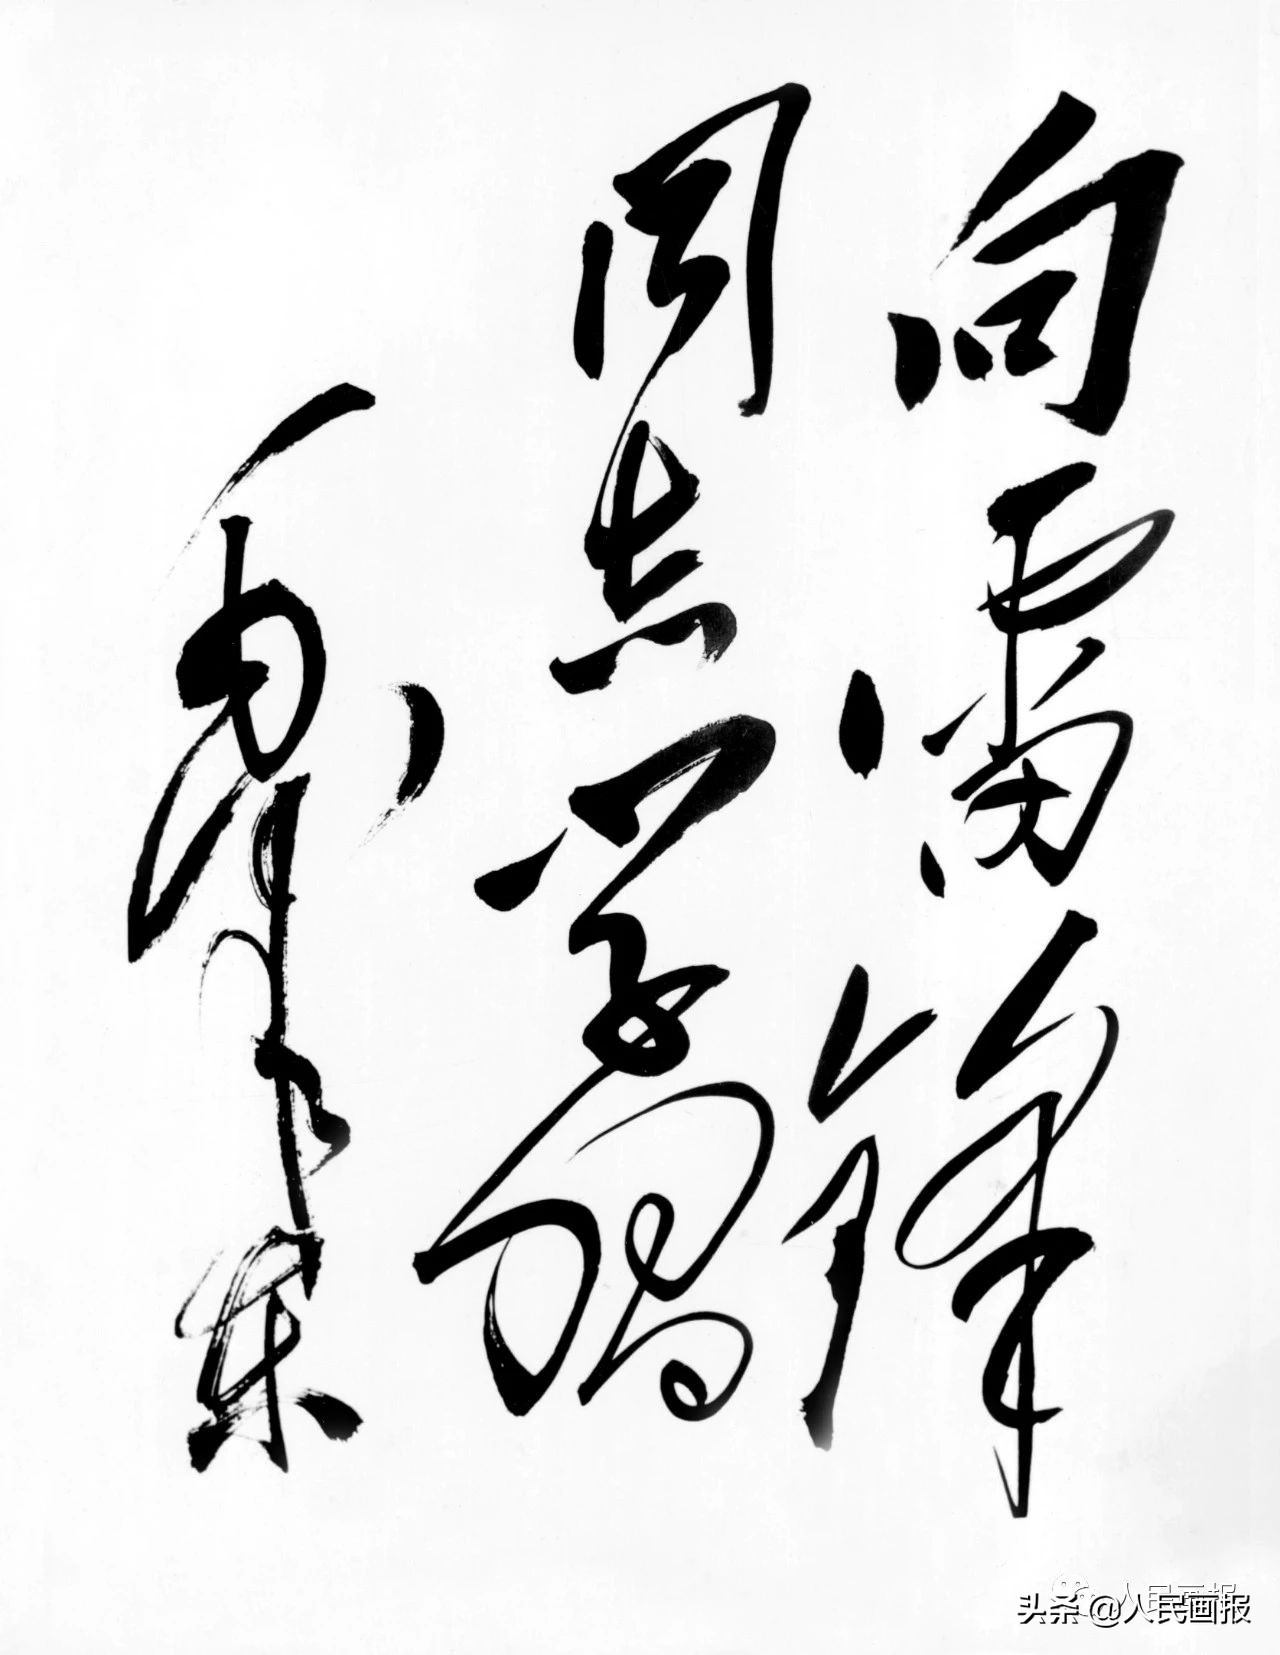 向雷锋
同志学习
毛泽东
头条 @人民画报
人民画报